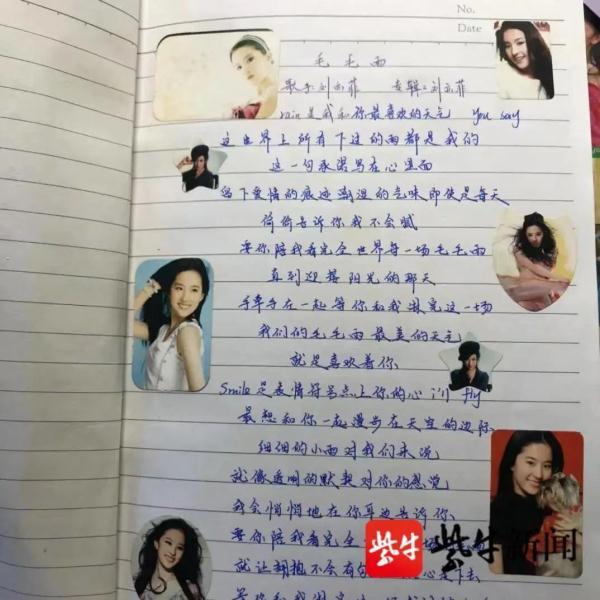 No.
Date
毛毛雨
歌手:刘亦菲 专辑:刘亦菲
rain是我和你最喜欢的天气 You say
这世界上所有下过的雨都是我的
这一句承诺写在心里面
留下爱情的痕迹潮湿的气味即使是每天
偷偷告诉你我不会腻
要你陪我看完全世界每一场毛毛雨
直到迎接阳光的那天
手牵手在一起等你和我淋完这一场
我们的毛毛雨最美的天气
就是喜欢着你
Smile是表情符号点上你的心 fly
最想和你一起漫步在天空的边际
细细的小雨对我们来说
就像透明的默契对你的感觉
我会悄悄地在你耳边告诉你
要你陪我看完全 场
就让拥抱不会有句 心是下去
等你和我淋完这
紫牛 紫牛新闻